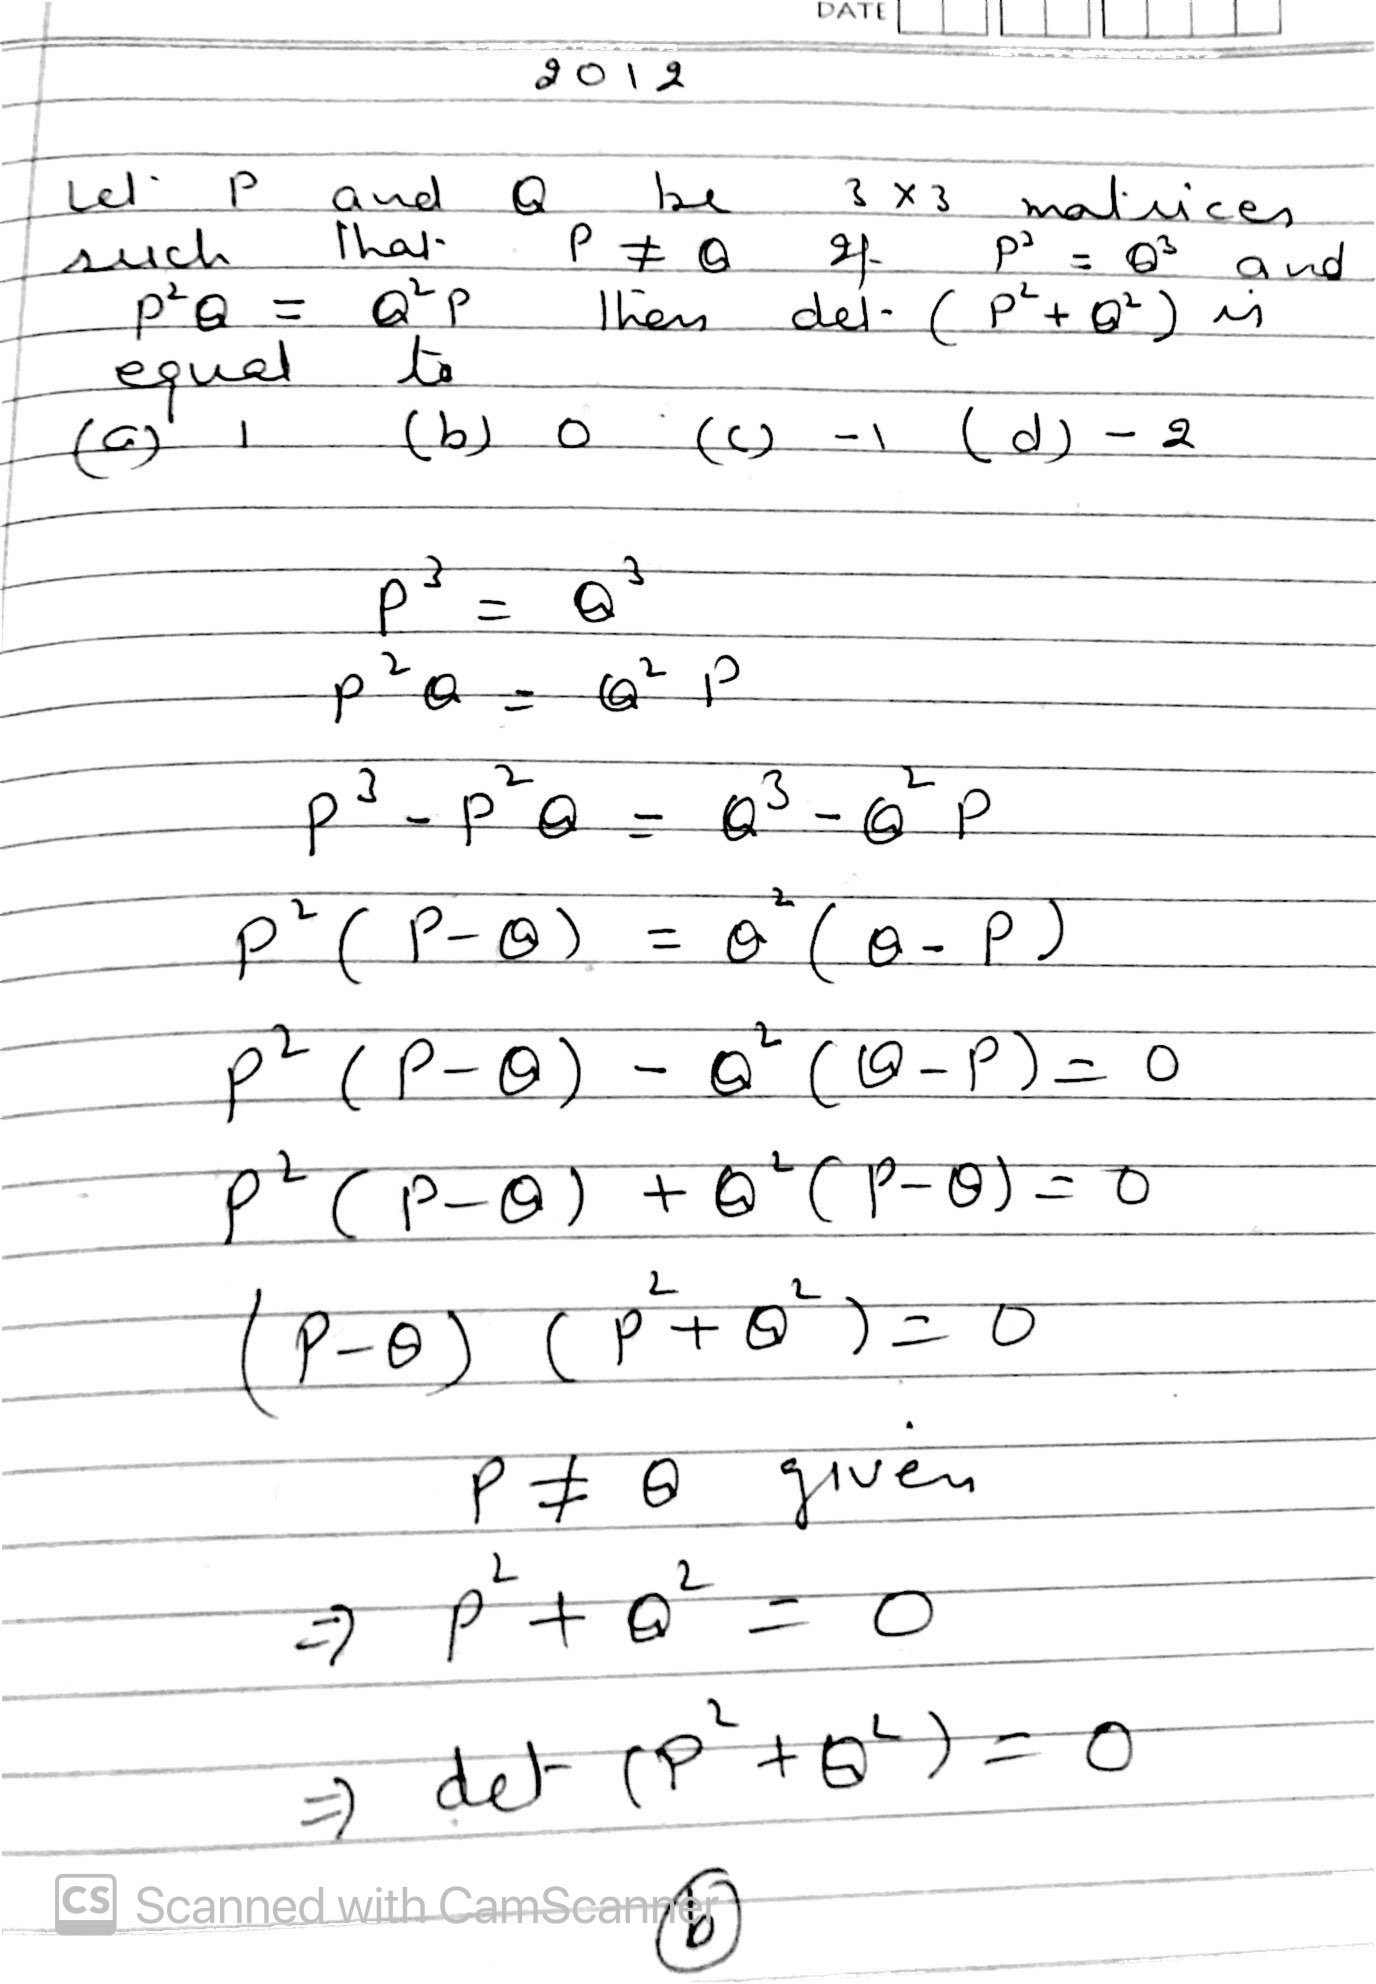 DATE
2012
Let P and Q be 3 × 3 matrices
such that P ≠ Q If P³ = Q³ and
P²Q = Q²P then det (P² + Q²) is
equal to
(a) 1 (b) 0 (c) -1 (d) -2
P³ = Q³
P²Q = Q²P
P³ - P²Q = Q³ - Q²P
P² (P - Q) = Q² (Q - P)
P² (P - Q) - Q² (Q - P) = 0
P² (P - Q) + Q² (P - Q) = 0
(P - Q) (P² + Q²) = 0
P ≠ Q given
⇒ P² + Q² = 0
⇒ det (P² + Q²) = 0
CS Scanned with CamScanner
b